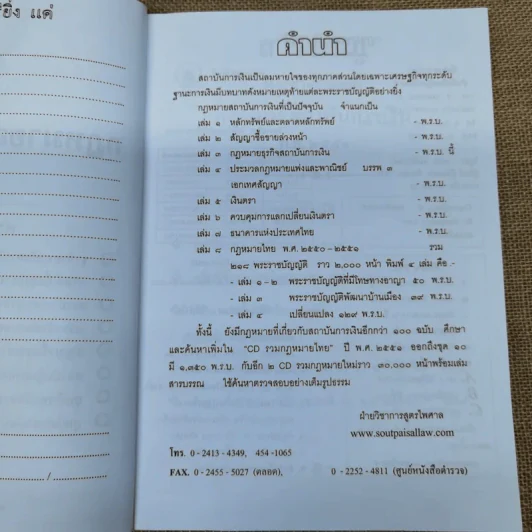 ยิ่ง แด่
คำนำ
สถาบันการเงินเป็นลมหายใจของทุกภาคส่วนโดยเฉพาะเศรษฐกิจทุกระดับ
ฐานะการเงินมีบทบาทดังหมายเหตุท้ายแต่ละพระราชบัญญัติอย่างยิ่ง
กฎหมายสถาบันการเงินที่เป็นปัจจุบัน จำแนกเป็น
เล่ม ๑ หลักทรัพย์และตลาดหลักทรัพย์ - พ.ร.บ.
เล่ม ๒ สัญญาซื้อขายล่วงหน้า - พ.ร.บ.
เล่ม ๓ กฎหมายธุรกิจสถาบันการเงิน - พ.ร.บ. นี้
เล่ม ๔ ประมวลกฎหมายแพ่งและพาณิชย์ บรรพ ๓
เอกเทศสัญญา - พ.ร.บ.
เล่ม ๕ เงินตรา - พ.ร.บ.
เล่ม ๖ ควบคุมการแลกเปลี่ยนเงินตรา - พ.ร.บ.
เล่ม ๗ ธนาคารแห่งประเทศไทย - พ.ร.บ.
เล่ม ๘ กฎหมายไทย พ.ศ. ๒๕๕๐ - ๒๕๕๑ รวม
๒๑๘ พระราชบัญญัติ ราว ๒,๐๐๐ หน้า พิมพ์ ๔ เล่ม คือ.-
- เล่ม ๑ - ๒ พระราชบัญญัติที่มีโทษทางอาญา ๕๐ พ.ร.บ.
- เล่ม ๓ พระราชบัญญัติพัฒนาบ้านเมือง ๓๙ พ.ร.บ.
- เล่ม ๔ เปลี่ยนแปลง ๑๒๙ พ.ร.บ.
ทั้งนี้ ยังมีกฎหมายที่เกี่ยวกับสถาบันการเงินอีกกว่า ๑๐๐ ฉบับ ศึกษา
และค้นหาเพิ่มใน "CD รวมกฎหมายไทย" ปี พ.ศ. ๒๕๕๑ ออกถึงชุด ๑๐
มี ๑,๓๕๐ พ.ร.บ. กับอีก ๒ CD รวมกฎหมายใหม่ราว ๓๐,๐๐๐ หน้าพร้อมเล่ม
สารบรรณ ใช้ค้นหาตรวจสอบอย่างเต็มรูปธรรม
ฝ่ายวิชาการสูตรไพศาล
www.soutpaisallaw.com
โทร. 0 - 2413 - 4349, 454 -1065
FAX. 0 - 2455 - 5027 (ตลอด), 0 - 2252 - 4811 (ศูนย์หนังสือตำรวจ)